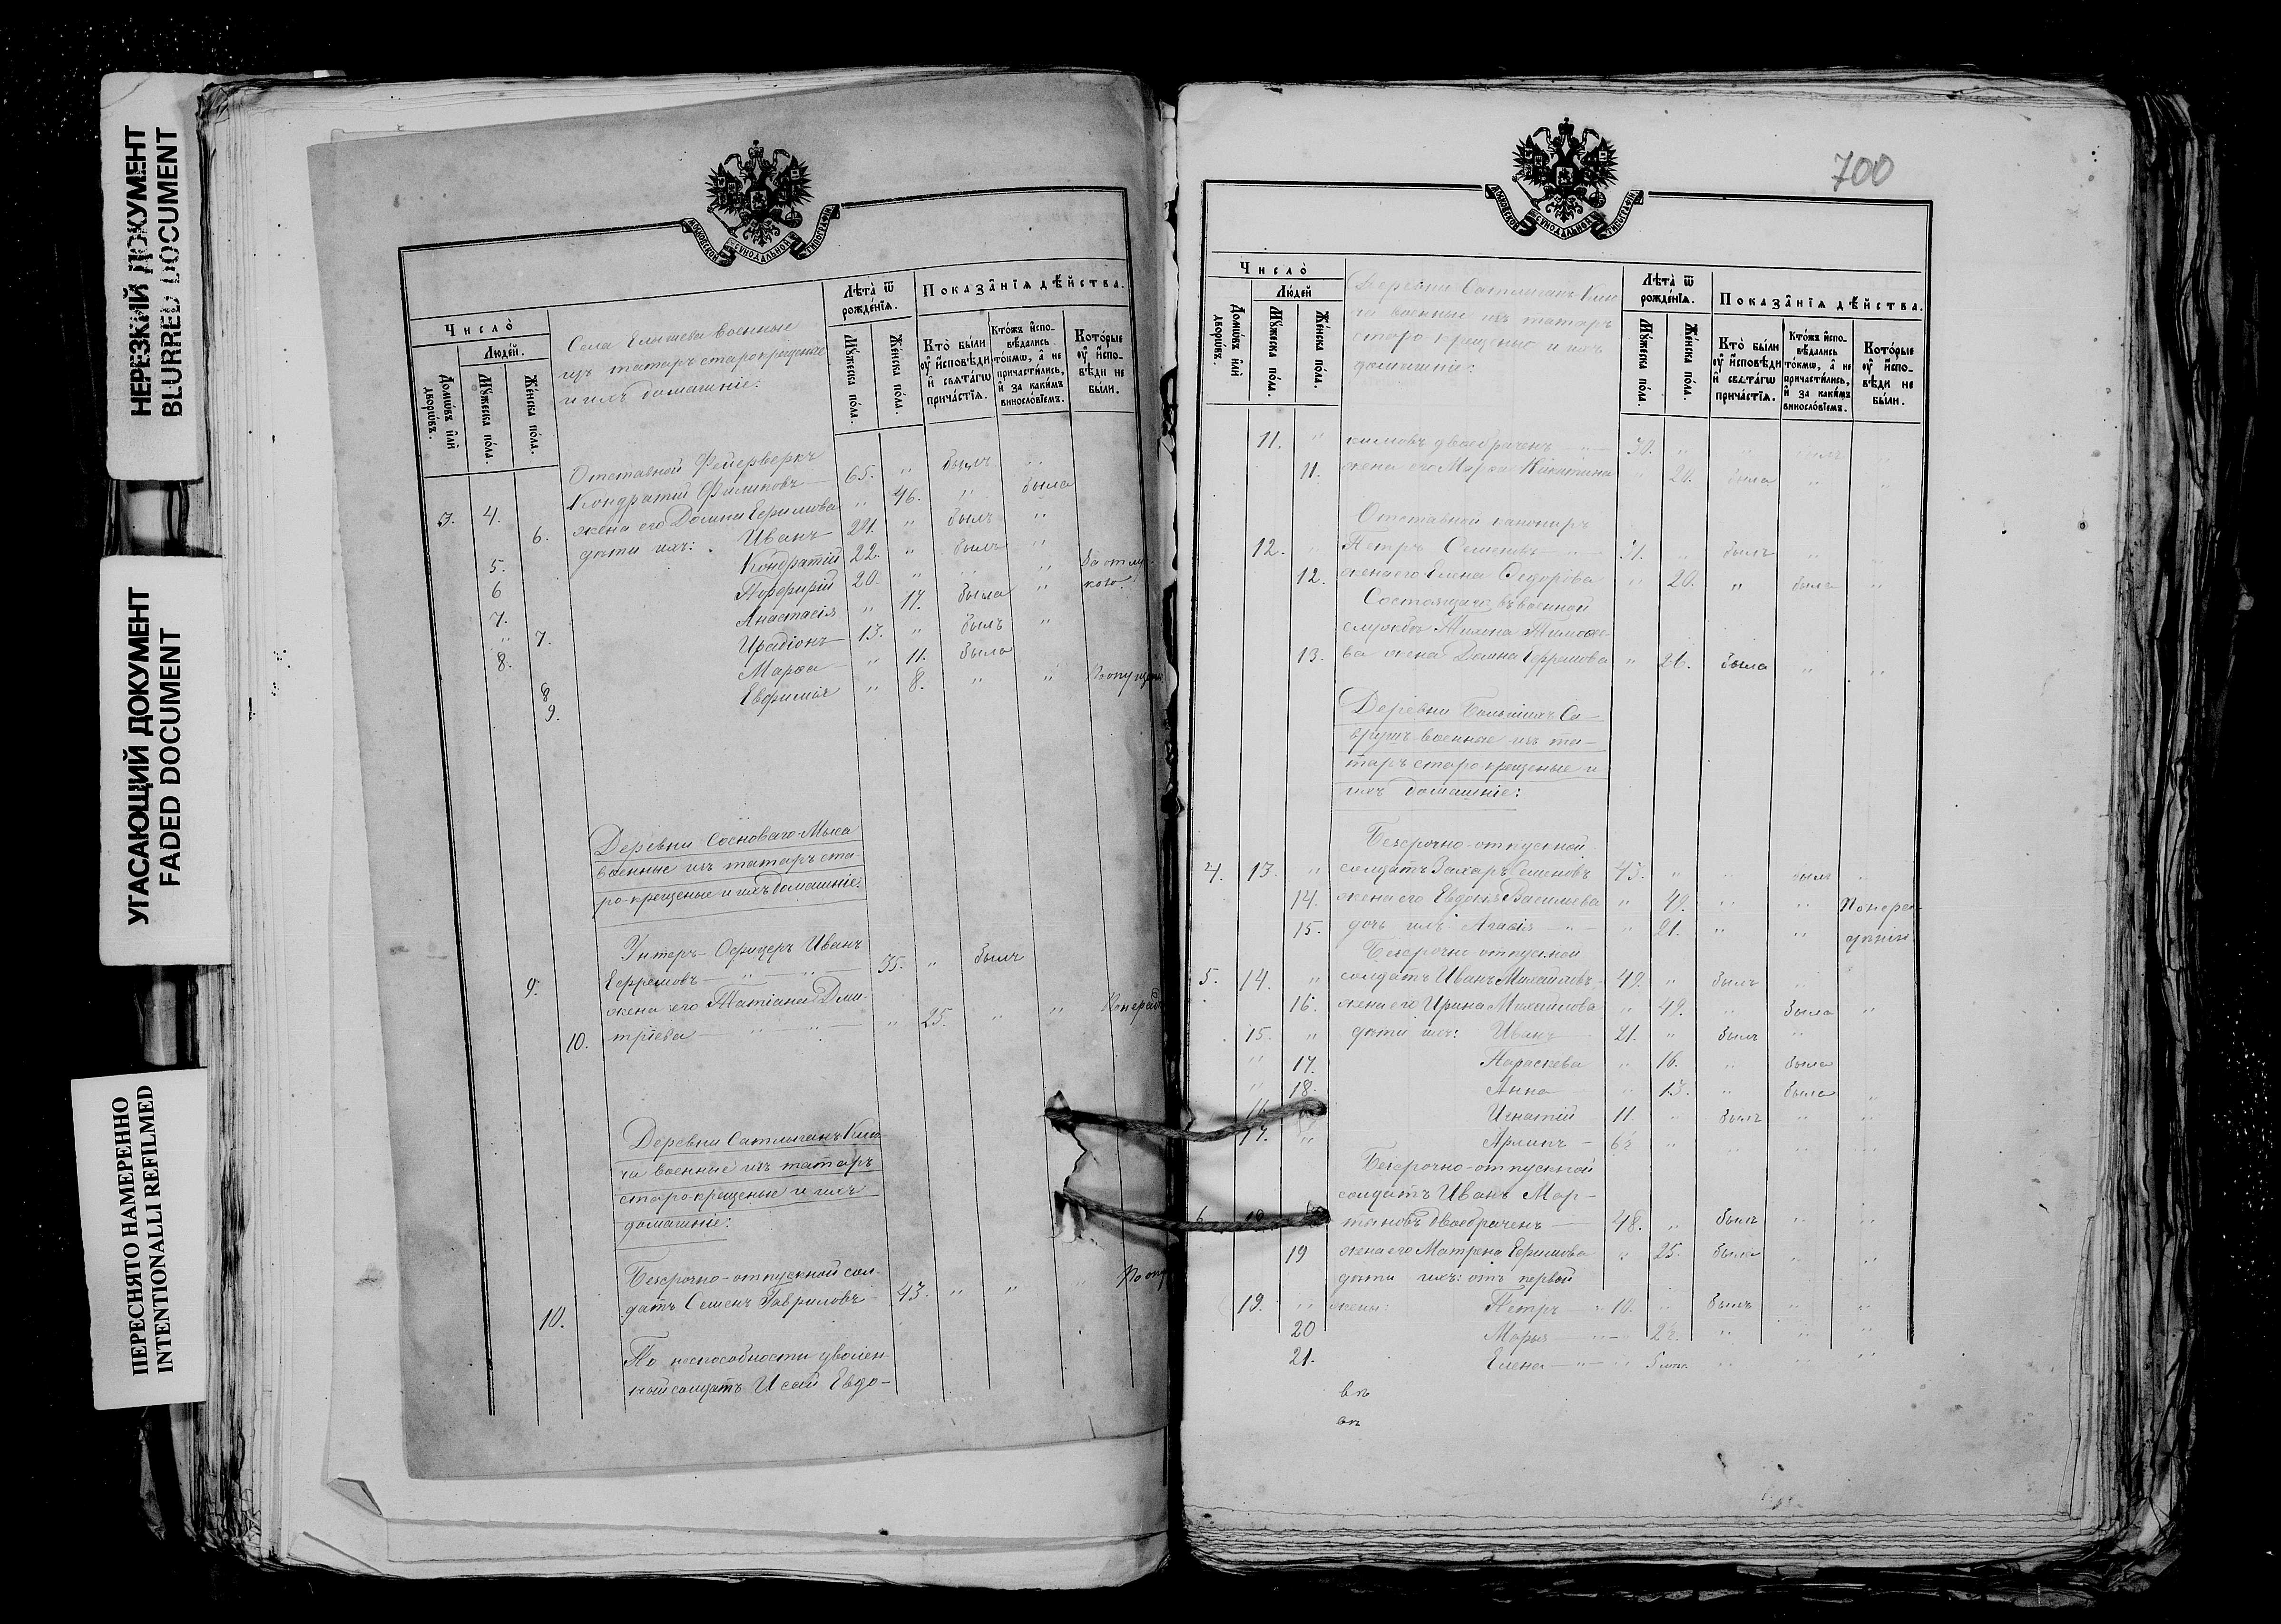 НЕРЕЗКИЙ ДОКУМЕНТ
BLURRED DOCUMENT
УГАСАЮЩИЙ ДОКУМЕНТ
FADED DOCUMENT
ПЕРЕСНЯТО НАМЕРЕННО
INTENTIONALLI REFILMED
МОСКОВСКОЙ СѴНОДАЛЬНОЙ ТИПОГРАФІИ
Число̀
Людей.
Домѡвъ и҆лѝ дворѡвъ.
Мꙋжеска по́ла.
Же́нска по́ла.
Села Елышева военные
изъ татаръ старокрещеные
и ихъ домашніе:
Лѣта̀ ѿ рожде́нїѧ.
Мꙋжеска по́ла.
Же́нска по́ла.
Показа̑нїѧ дѣ́йства.
Кто̀ бы́ли оу҆ и҆сповѣди и҆ свѧта́гѡ прича́стїѧ.
Кто́жъ и҆спо-вѣдались то́кмѡ, а҆ не причасти́лись, и҆ за каки́мъ винослове́мъ.
Кото́рые оу҆ и҆спо-вѣди не бы́ли.
Отставной Фейерверкъ
3. 4. Кондратій Филиповъ 65. " былъ "
6. жена его Домна Ефимова " 46. " была
5. дѣти ихъ: Иванъ 24. " былъ "
6 Кондратій 22. " былъ "
7. Порфирій 20. " " " За отлу-
" 7. Анастасія " 17. была " кою
8. Иродіонъ 13. " былъ "
8 Марѳа " 11. была
9. Евфимія " 8. " "
Деревни Сосноваго-Мыса
военные изъ татаръ ста-
ро-крещеные и ихъ домашніе:
Унтеръ-Офицеръ Иванъ
9. Ефремовъ " " 35. " былъ
жена его Татіана Дми-
10. тріева " " " 25. " "
Деревни Сатлыганъ-Клю-
ча военные изъ татаръ
старо-крещеные и ихъ
домашніе:
Безсрочно-отпускной сол-
10. датъ Семенъ Гавриловъ 43. " "
По неспособности уволен-
ный солдатъ Исай Евдо-
700
МОСКОВСКОЙ СѴНОДАЛЬНОЙ ТИПОГРАФІИ
Число̀
Людей
Домѡвъ и҆лѝ дворѡвъ.
Мꙋжеска по́ла.
Же́нска по́ла.
Деревни Сатлыганъ-Клю
ча военные изъ татаръ
старо крещеные и ихъ
домашніе:
Лѣта̀ ѿ рожде́нїѧ.
Мꙋжеска по́ла.
Же́нска по́ла.
Показа̑нїѧ дѣ́йства.
Кто̀ бы́ли оу҆ и҆сповѣди и҆ свѧта́гѡ прича́стїѧ.
Кто́жъ и҆спо-вѣдались то́кмѡ, а҆ не причасти́лись, и҆ за каки́мъ винослове́мъ.
Кото́рые оу҆ и҆спо-вѣди не бы́ли.
11. " кимовъ двоебраченъ 30. " " былъ "
11. жена его Никитина " 20. была " "
Отставной канониръ
12. " Петръ Семеновъ " былъ "
12. жена его Елена Ѳедорова " 20. " была "
Состоящаго въ военной
службѣ
13. ва жена Домна Ефремова " 26. была " "
Деревни Большихъ Са-
врушъ военные изъ та-
таръ старо крещеные и
ихъ домашніе:
Безсрочно-отпускной
4. 13. " солдатъ Захаръ Семеновъ 43. " " былъ
14. жена его Евдокія Васильева " 42. " " По нера-
15. дочь ихъ Агафія " " 21. " " дѣнію
Безсрочно отпускной
5. 14. " солдатъ Иванъ Михайловъ 49. " былъ "
16. жена его Ирина Михайлова " 49. " была "
15. " дѣти ихъ: Иванъ 21. " былъ "
" 17. Параскева " 16. " была
" 18. Анна " 13. " была "
16. " Игнатій 11. " былъ " "
17. " 6½ " " "
Безсрочно-отпускной
солдатъ Иванъ Мар-
6. 18. тыновъ двоебраченъ 48. " былъ " "
19 жена его Матрена Ефимова " 25. была " "
дѣти ихъ: отъ первой
19. " жены: Петръ 10. " былъ " "
20 Марья " 2½. " " "
21. Елена " " " " "